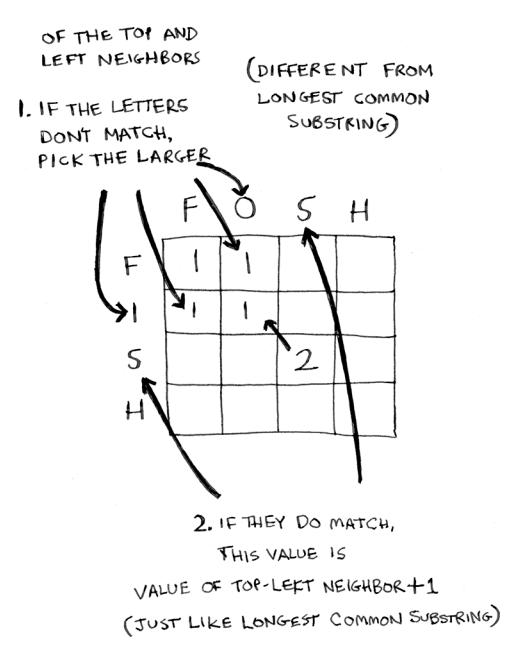 OF THE TOP AND
LEFT NEIGHBORS
(DIFFERENT FROM
LONGEST COMMON
SUBSTRING)
1. IF THE LETTERS
DONT MATCH,
PICK THE LARGER
F O S H
F 1 1
I 1 1
S 2
H
2. IF THEY DO MATCH,
THIS VALUE IS
VALUE OF TOP-LEFT NEIGHBOR+1
(JUST LIKE LONGEST COMMON SUBSTRING)